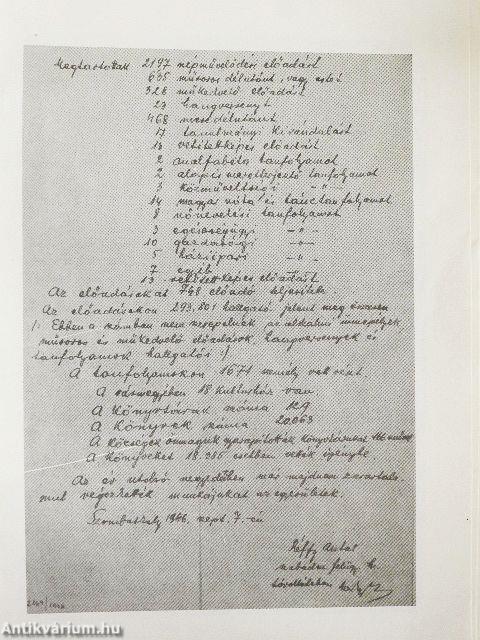 Megtartottak 2197 népművelődési előadást
635 műsoros délutánt, vagy estet
328 műkedvelő előadást
27 hangversenyt
468 mesedélutánt
17 tanulmányi kirándulást
13 vetítettképes előadást
2 analfabéta tanfolyamot
2 alapismeretterjesztő tanfolyamot
3 közművelődési -„-
14 magyar nóta és tánctanfolyamot
8 nőnevelési tanfolyamot
3 egészségügyi -„-
10 gazdasági -„-
5 háziipari -„-
7 egyéb
13 vetítettképes előadást
Az előadásokat 748 előadó teljesítette
Az előadásokon 293.801 hallgató jelent meg összesen
/: Ebben a számban nem szerepelnek az alkalmi ünnepélyek,
műsoros és műkedvelő előadások, hangversenyek és
tanfolyamok hallgatói :/
A tanfolyamokon 1671 személy vett részt
A vármegyében 18 kultúrház van
A könyvtárak száma 129
A könyvek száma 20.063
A községek önmaguk gyarapították könyvtárukat
A könyveket 18.985 esetben vették igénybe
Az év utolsó negyedében már majdnem zavartala-
nul végezhették munkájukat az egyesületek.
Szombathely 1946. szept. 7.-én
Antal
szabadm. felügy. h.
2169/1946
Antikvárium.hu